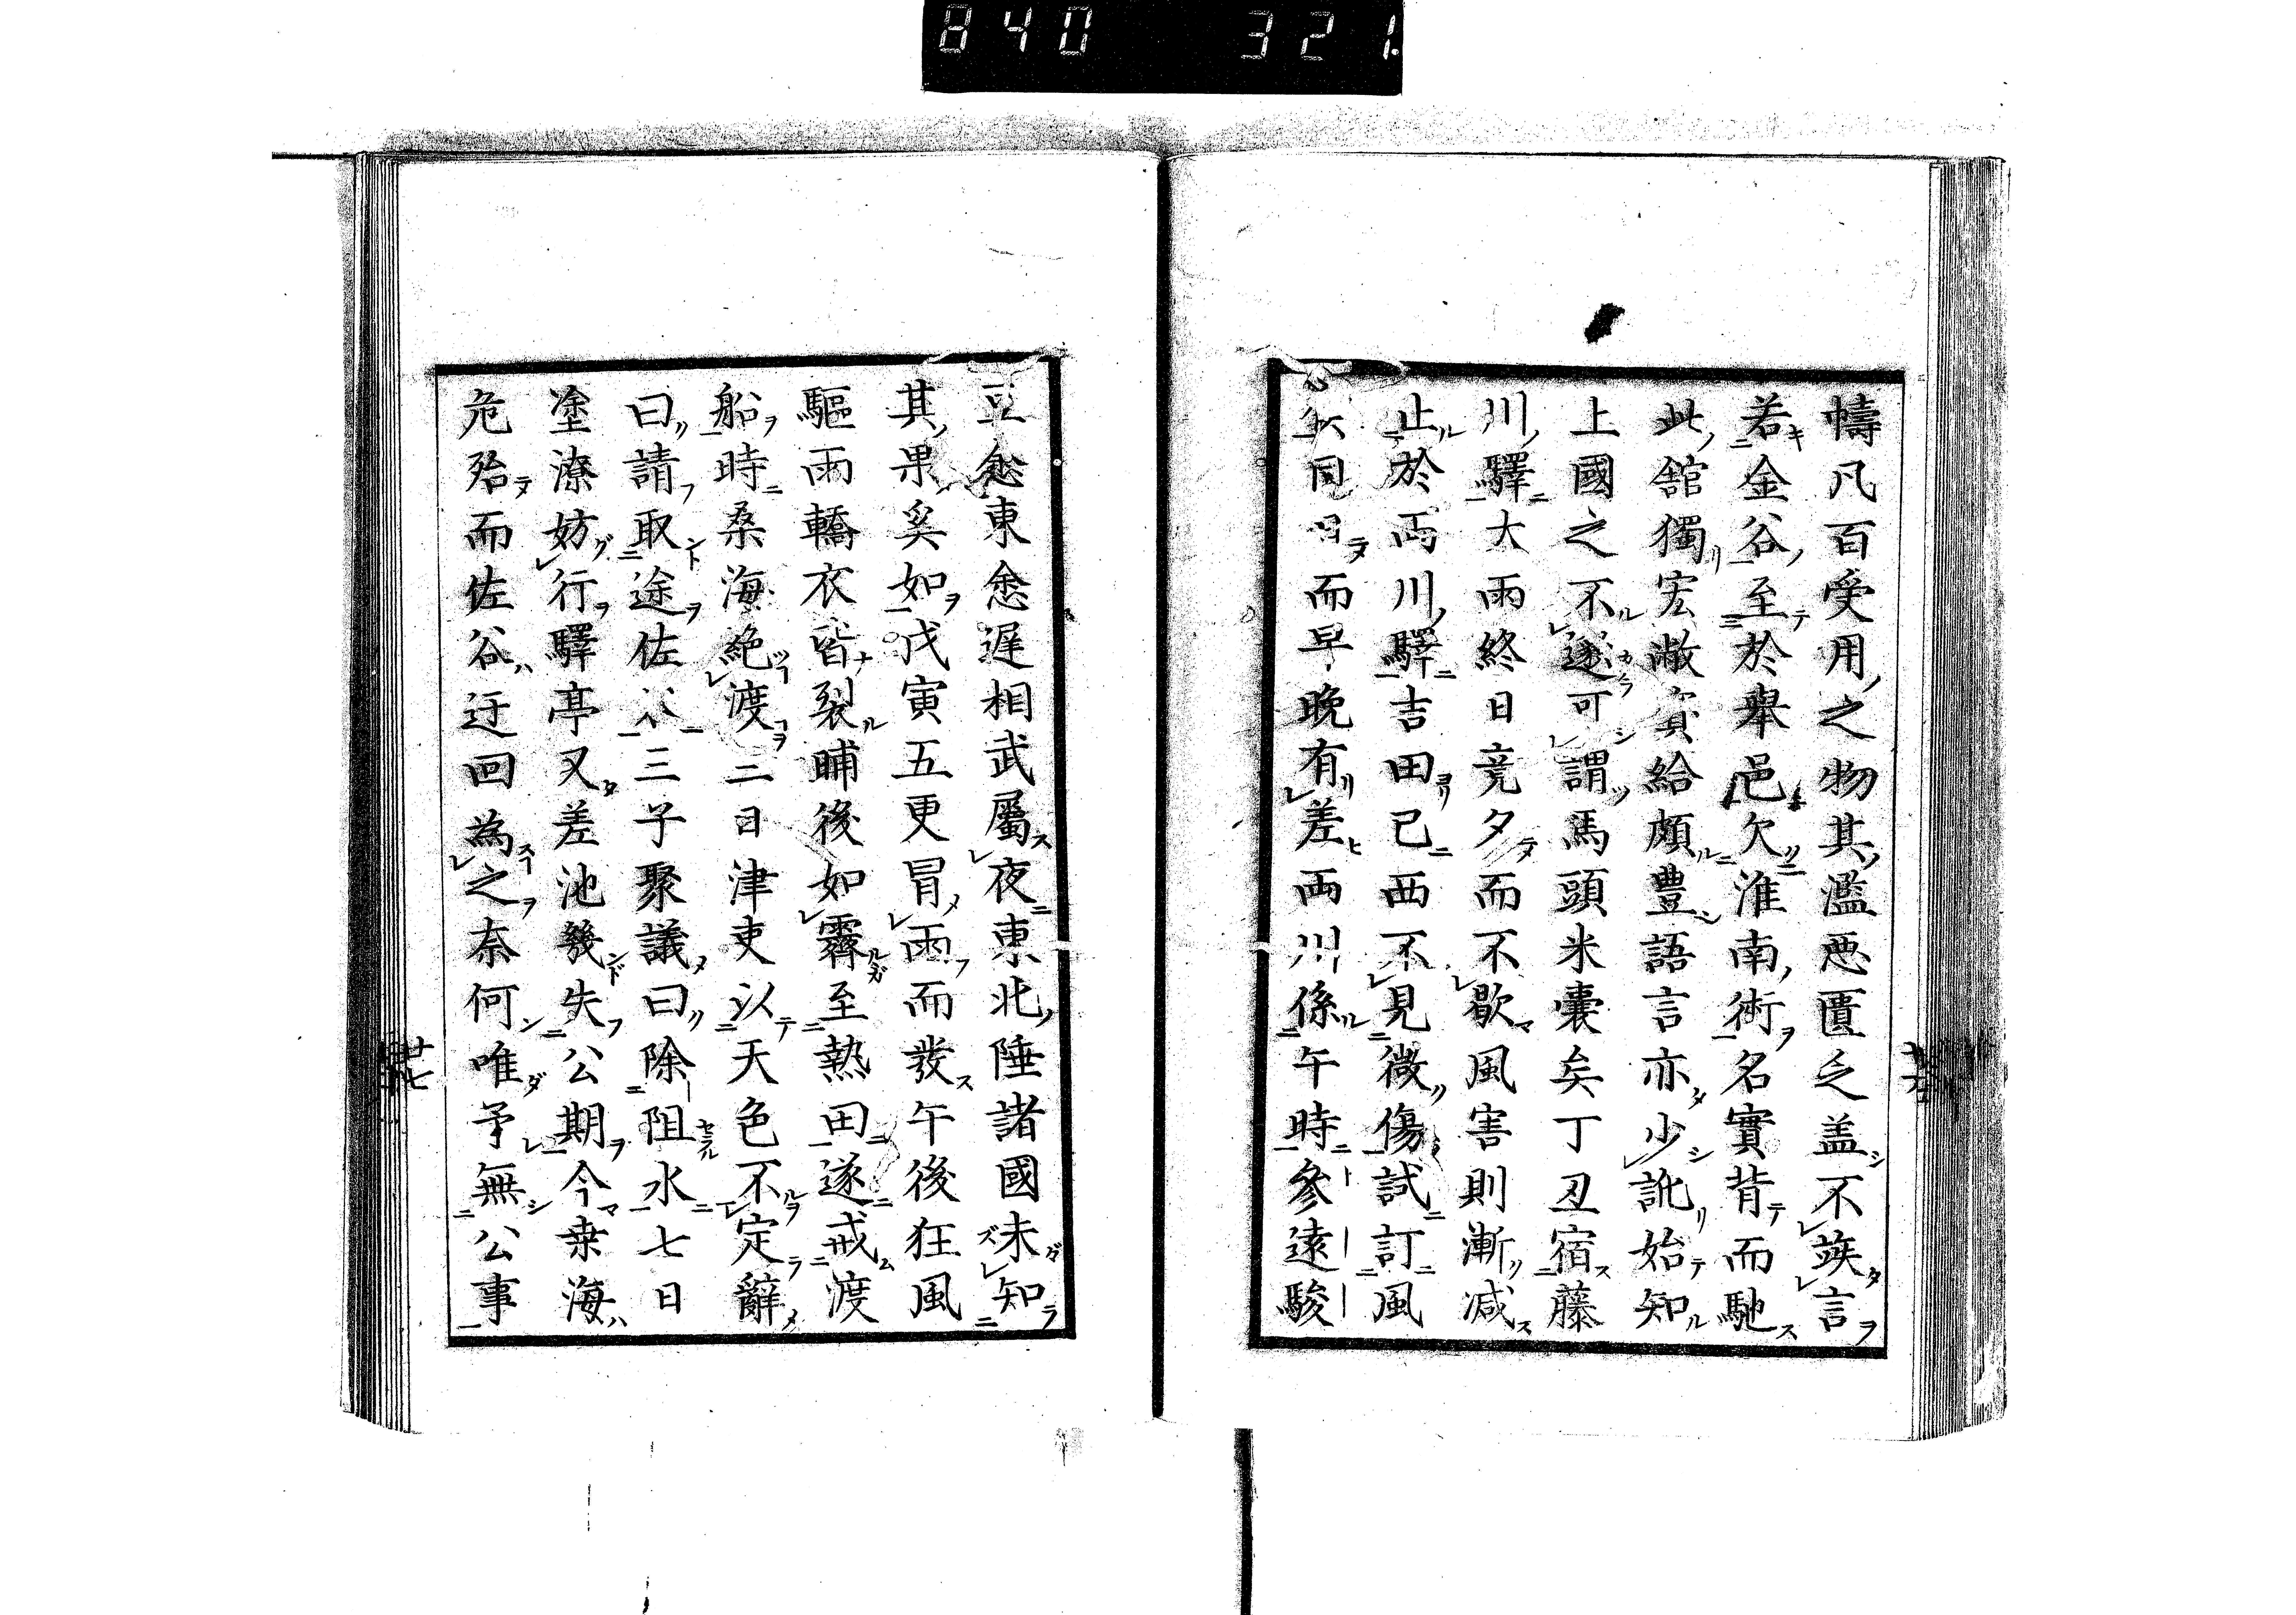 840 321.
幬凡百受用之物其濫惡匱乏盖不竢言
若金谷至於舉邑欠淮南術名實背而馳
此舘獨宏敞賓給頗豊語言亦少訛始知
上國之不遂可謂馬頭米嚢矣丁丑宿藤
川驛大雨終日竟夕而不歇風害則漸减
止於両川驛吉田已西不見微傷試訂風
同而早晚有差両川係午時參遠駿
豆愈東愈遅相武屬夜東北陲諸國未知
其果奚如戊寅五更冒雨而発午後狂風
驅雨轎衣皆裂晡後如霽至熱田遂戒渡
船時桑海絶渡二日津吏以天色不定辭
曰請取途佐三子聚議曰除阻水七日
塗潦妨行驛亭又差池幾失公期今桒海
危殆而佐谷迂回為之奈何唯予無公事
廿七